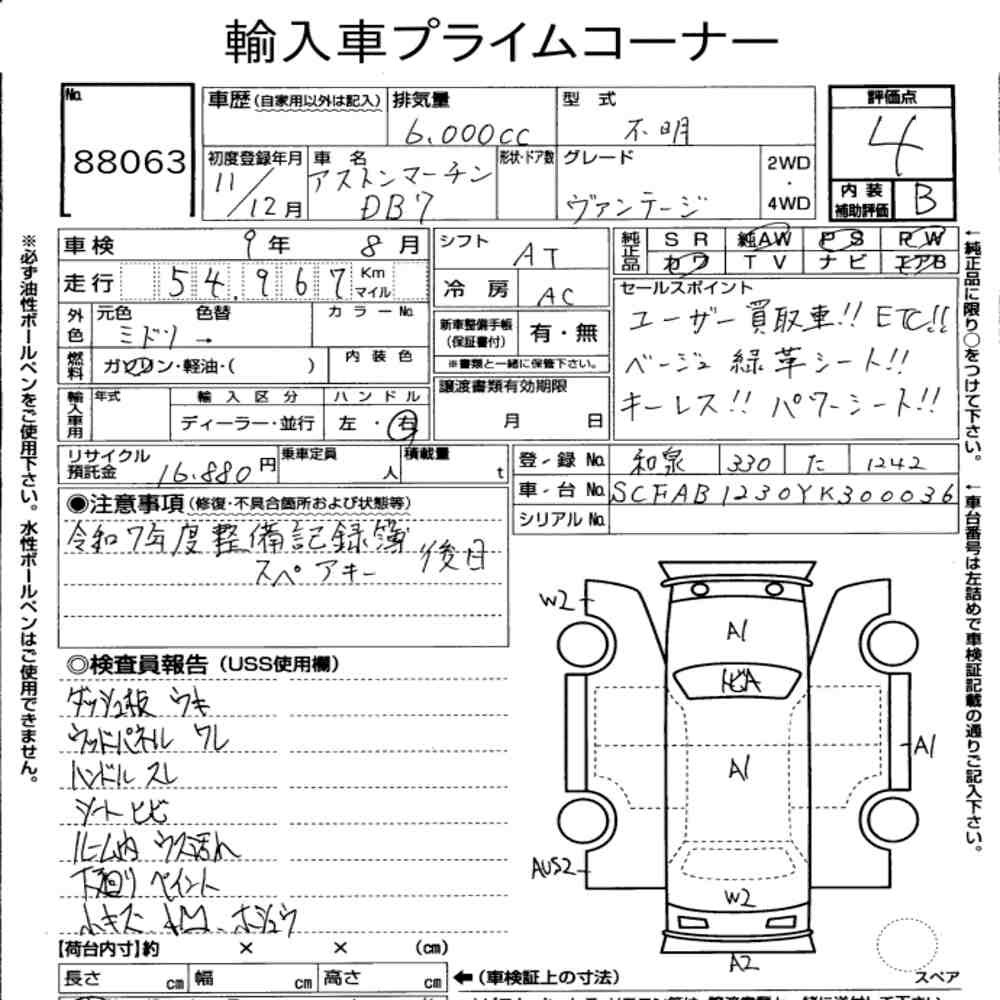 輸入車プライムコーナー
No. 88063
車歴(自家用以外は記入) 排気量 6.000cc 型式 不明
評価点 4
内装補助評価 B
初度登録年月 11/12月 車名 アストンマーチン DB7 形状・ドア数 グレード ヴァンテージ 2WD・4WD
※必ず油性ボールペンをご使用下さい。水性ボールペンはご使用できません。
車検 9年 8月
走行 54.967 Km マイル
外色 元色 ミドリ → 色替 カラーNo.
燃料 ガソリン・軽油・( ) 内装色
輸入車用 年式 輸入区分 ディーラー・並行 ハンドル 左・右
シフト AT
冷房 AC
新車整備手帳(保証書付) 有・無
※書類と一緒に保管下さい。
譲渡書類有効期限 月 日
純正品 SR 純AW PS PW
カワ TV ナビ エアB
セールスポイント
ユーザー買取車!! ETC!!
ベージュ緑革シート!!
キーレス!! パワーシート!!
←純正品に限り○をつけて下さい。
リサイクル預託金 16.880円 乗車定員 人 積載量 t
登録No. 和泉 330 た 1242
車台No. SCFAB1230YK300036
シリアルNo.
←車台番号は左詰めで車検証記載の通りご記入下さい。
◉注意事項(修復・不具合箇所および状態等)
令和7年度整備記録簿 後日
スペアキー
◎検査員報告(USS使用欄)
ダッシュ板 ウキ
ウッドパネル ワレ
ハンドル スレ
シート ヒビ
ルーム内 ウス汚れ
下廻り ペイント
小キズ
W2
A1
A1
A1
AUS2
W2
A2
スペア
【荷台内寸】約 × × (cm)
長さ cm 幅 cm 高さ cm ←(車検証上の寸法)